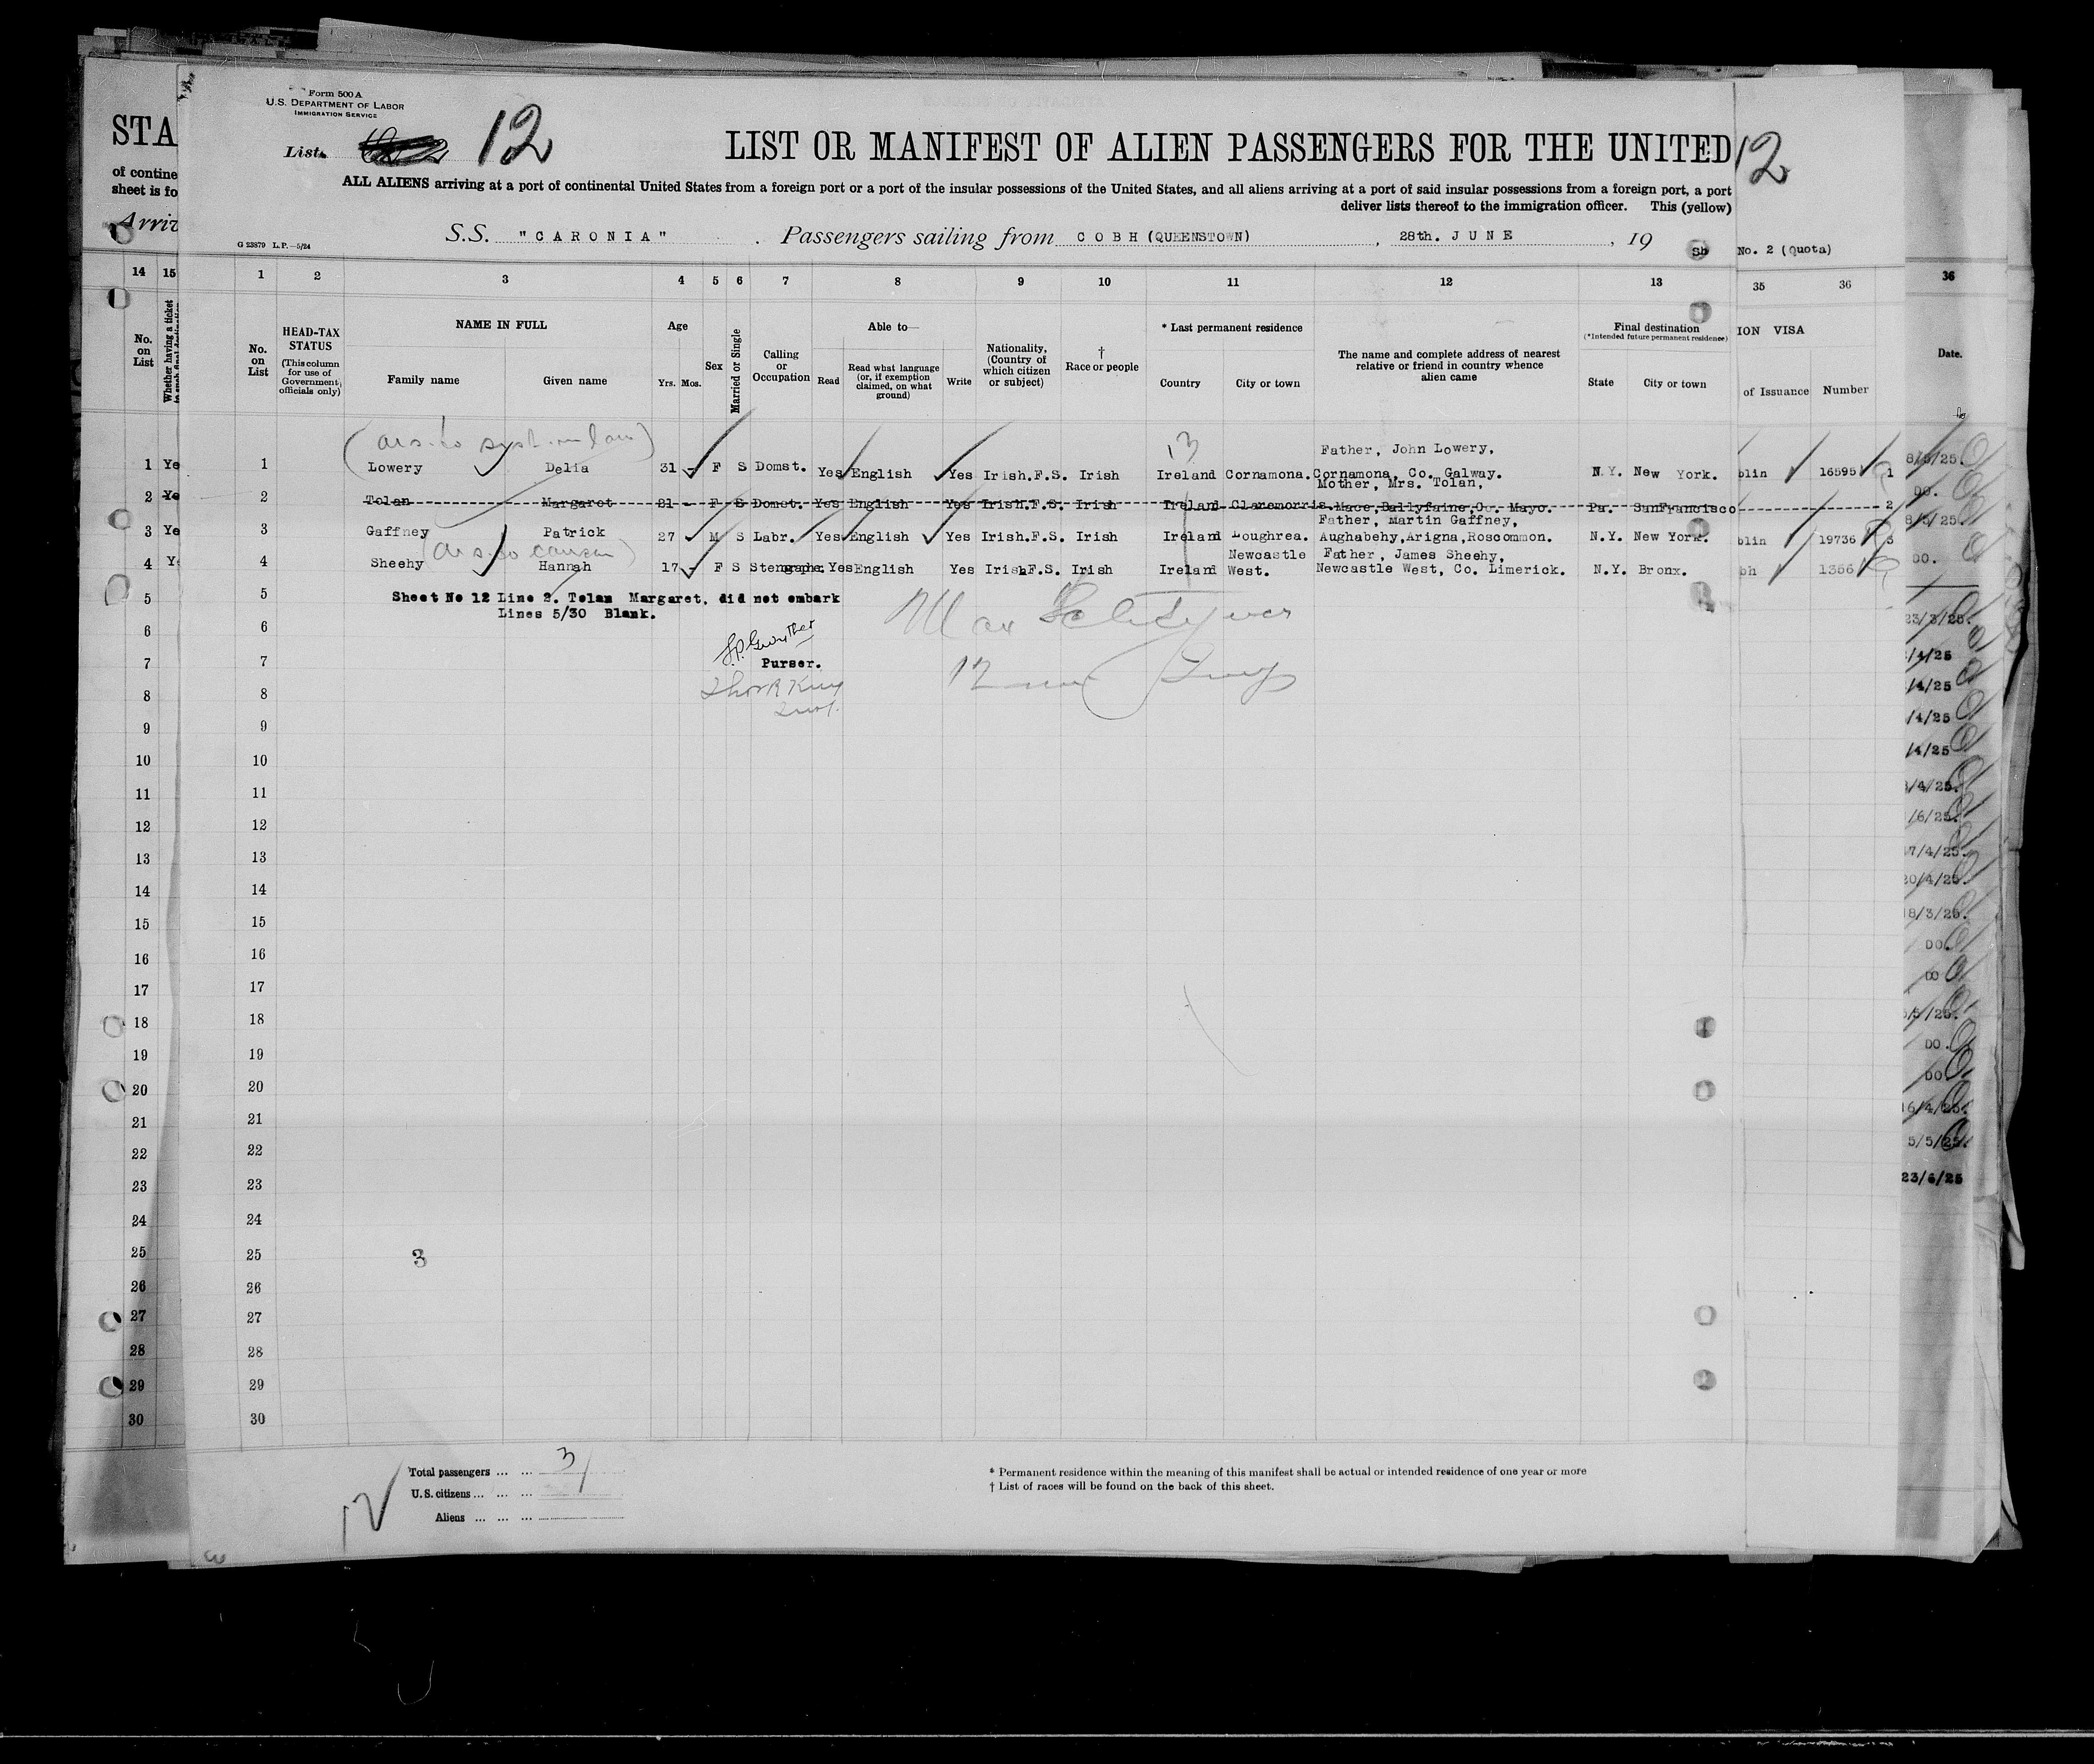 Form 500 A
U.S. DEPARTMENT OF LABOR
IMMIGRATION SERVICE
STA
List 12
LIST OR MANIFEST OF ALIEN PASSENGERS FOR THE UNITED
12
of contine
sheet is fo
ALL ALIENS arriving at a port of continental United States from a foreign port or a port of the insular possessions of the United States, and all aliens arriving at a port of said insular possessions from a foreign port, a port
deliver lists thereof to the immigration officer. This (yellow)
Arriv
G 23879 L.P.—5/24
S.S. "CARONIA" . Passengers sailing from COBH (QUEENSTOWN) , 28th. JUNE , 19
Sh No. 2 (Quota)
14 15 1 2 3 4 5 6 7 8 9 10 11 12 13 35 36 36
No. on List
Whether having a ticket
No. on List
HEAD-TAX STATUS
(This column for use of Government officials only)
NAME IN FULL
Family name Given name
Age
Yrs. Mos.
Sex
Married or Single
Calling or Occupation
Able to—
Read
Read what language (or, if exemption claimed, on what ground)
Write
Nationality, (Country of which citizen or subject)
† Race or people
* Last permanent residence
Country City or town
The name and complete address of nearest relative or friend in country whence alien came
Final destination
(*Intended future permanent residence)
State City or town
ION VISA
of Issuance Number
Date.
13 Father, John Lowery,
1 Ye 1 Lowery Delia 31 - F S Domst. Yes English Yes Irish.F.S. Irish Ireland Cornamona. Cornamona, Co. Galway. N.Y. New York. blin 16595 1 8/5/25.
Mother, Mrs. Tolan,
2 Ye 2 Tolan Margaret 21 - F S Domst. Yes English Yes Irish.F.S. Irish Ireland Claremorris. Mace, Ballyfaine, Co. Mayo. Pa. SanFrancisco 2 DO.
Father, Martin Gaffney,
3 Ye 3 Gaffney Patrick 27 M S Labr. Yes English Yes Irish.F.S. Irish Ireland Loughrea. Aughabehy, Arigna, Roscommon. N.Y. New York. blin 19736 3 8/5/25.
Newcastle Father, James Sheehy,
4 Ye 4 Sheehy Hannah 17 - F S Yes English Yes Irish F.S. Irish Ireland West. Newcastle West, Co. Limerick. N.Y. Bronx. bh 1356 DO.
5 5 Sheet No 12 Line 2. Tolan Margaret, did not embark
Lines 5/30 Blank.
23/3/25.
6 6
7 7 Purser.
/4/25
8 8
/4/25
9 9
/4/25
10 10
/4/25
11 11
/4/25.
12 12
/6/25.
13 13
7/4/25.
14 14
20/4/25.
15 15
18/3/25.
16 16
DO.
17 17
DO
18 18
/5/25.
19 19
DO.
20 20
DO.
21 21
16/4/25.
22 22
5/5/25.
23 23
23/6/25
24 24
25 25 3
26 26
27 27
28 28
29 29
30 30
Total passengers ... ... 3
U.S. citizens ... ... ...
Aliens ... ... ...
12
* Permanent residence within the meaning of this manifest shall be actual or intended residence of one year or more
† List of races will be found on the back of this sheet.
3